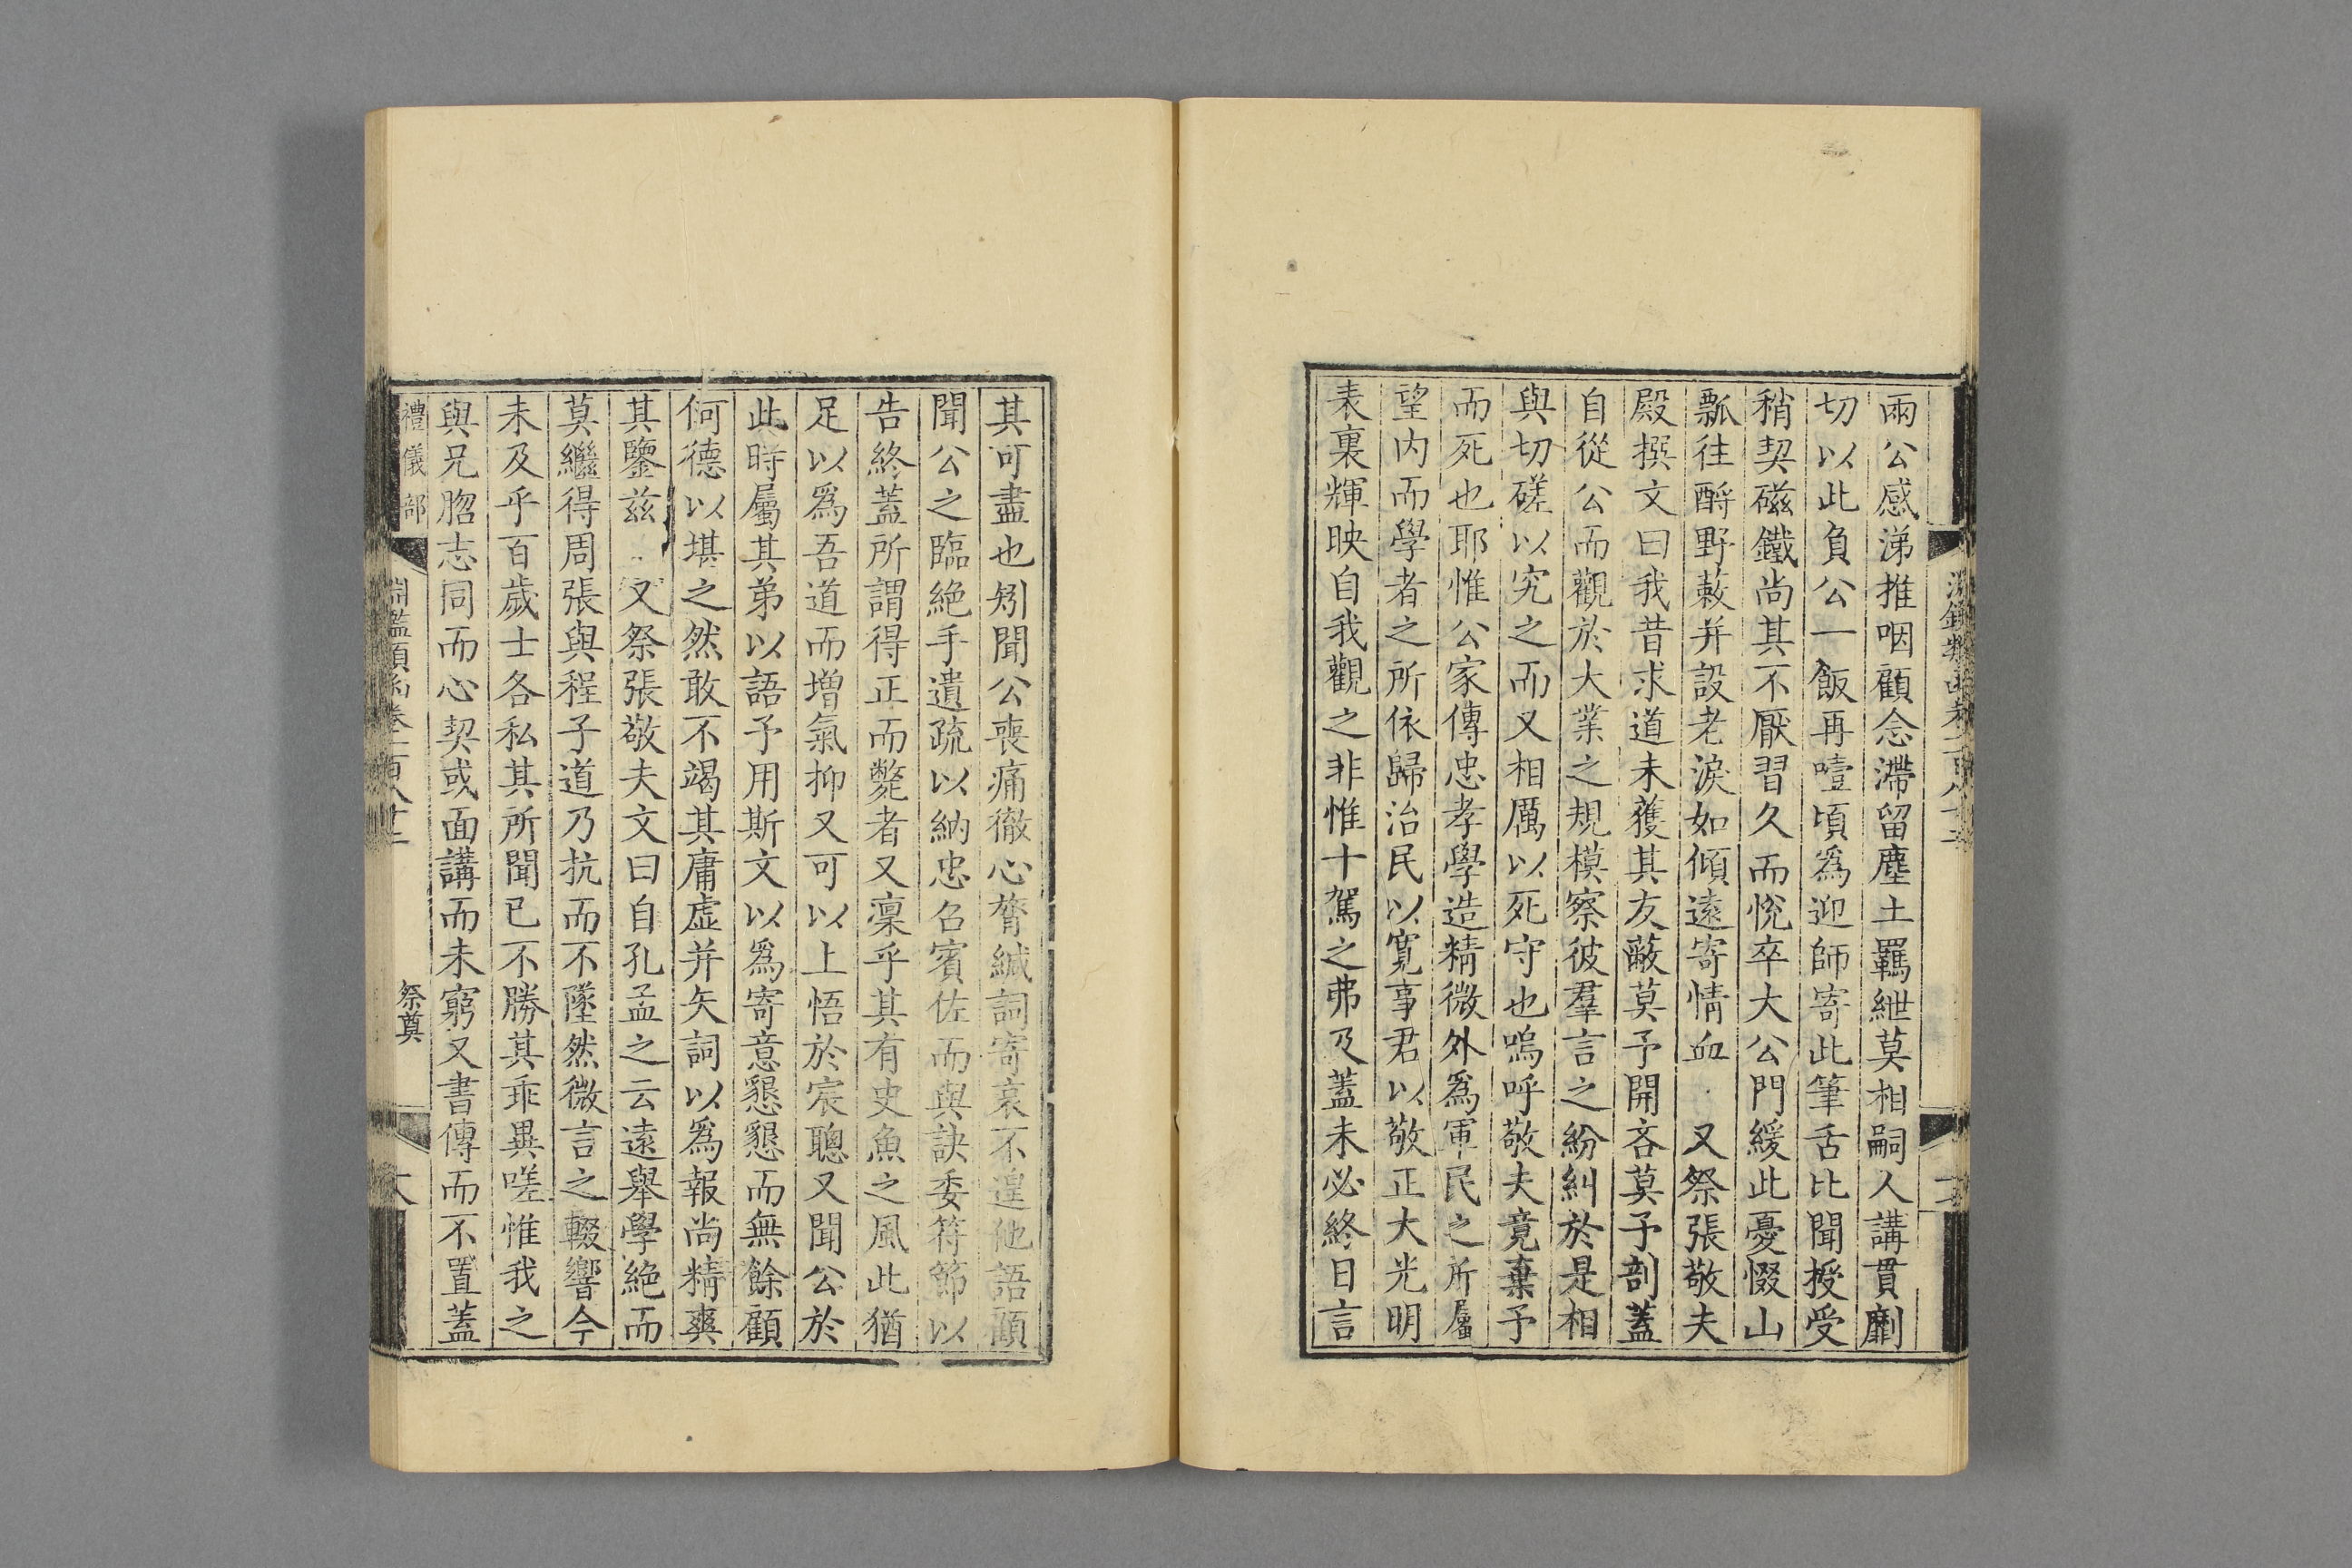 兩公感涕推咽顧念滯留塵土羈紲莫相嗣人講貫劘
切以此負公一飯再噎頃爲迎師寄此筆舌比聞授受
稍契磁鐵尚其不厭習久而悅卒大公門緩此憂惙山
瓢往酹野蔌并設老淚如傾遠寄情血 又祭張敬夫
殿撰文曰我昔求道未獲其友蔽莫予開吝莫予剖蓋
自從公而觀於大業之規模察彼羣言之紛糾於是相
與切磋以究之而又相厲以死守也嗚呼敬夫竟棄予
而死也耶惟公家傳忠孝學造精微外爲軍民之所屬
望内而學者之所依歸治民以寬事君以敬正大光明
表裏輝映自我觀之非惟十駕之弗及蓋未必終日言
其可盡也矧聞公喪痛徹心膂緘詞寄哀不遑他語顧
聞公之臨絶手遺疏以納忠召賓佐而與訣委符節以
告終蓋所謂得正而斃者又凜乎其有史魚之風此猶
足以爲吾道而增氣抑又可以上悟於宸聰又聞公於
此時屬其弟以語予用斯文以爲寄意懇懇而無餘顧
何德以堪之然敢不竭其庸虛并矢詞以爲報尚精爽
其鑒兹 又祭張敬夫文曰自孔孟之云遠舉學絶而
莫繼得周張與程子道乃抗而不墜然微言之輟響今
未及乎百歲士各私其所聞已不勝其乖異嗟惟我之
與兄脗志同而心契或面講而未窮又書傳而不置蓋
禮儀部
淵鑑類函卷一百八十二
祭奠